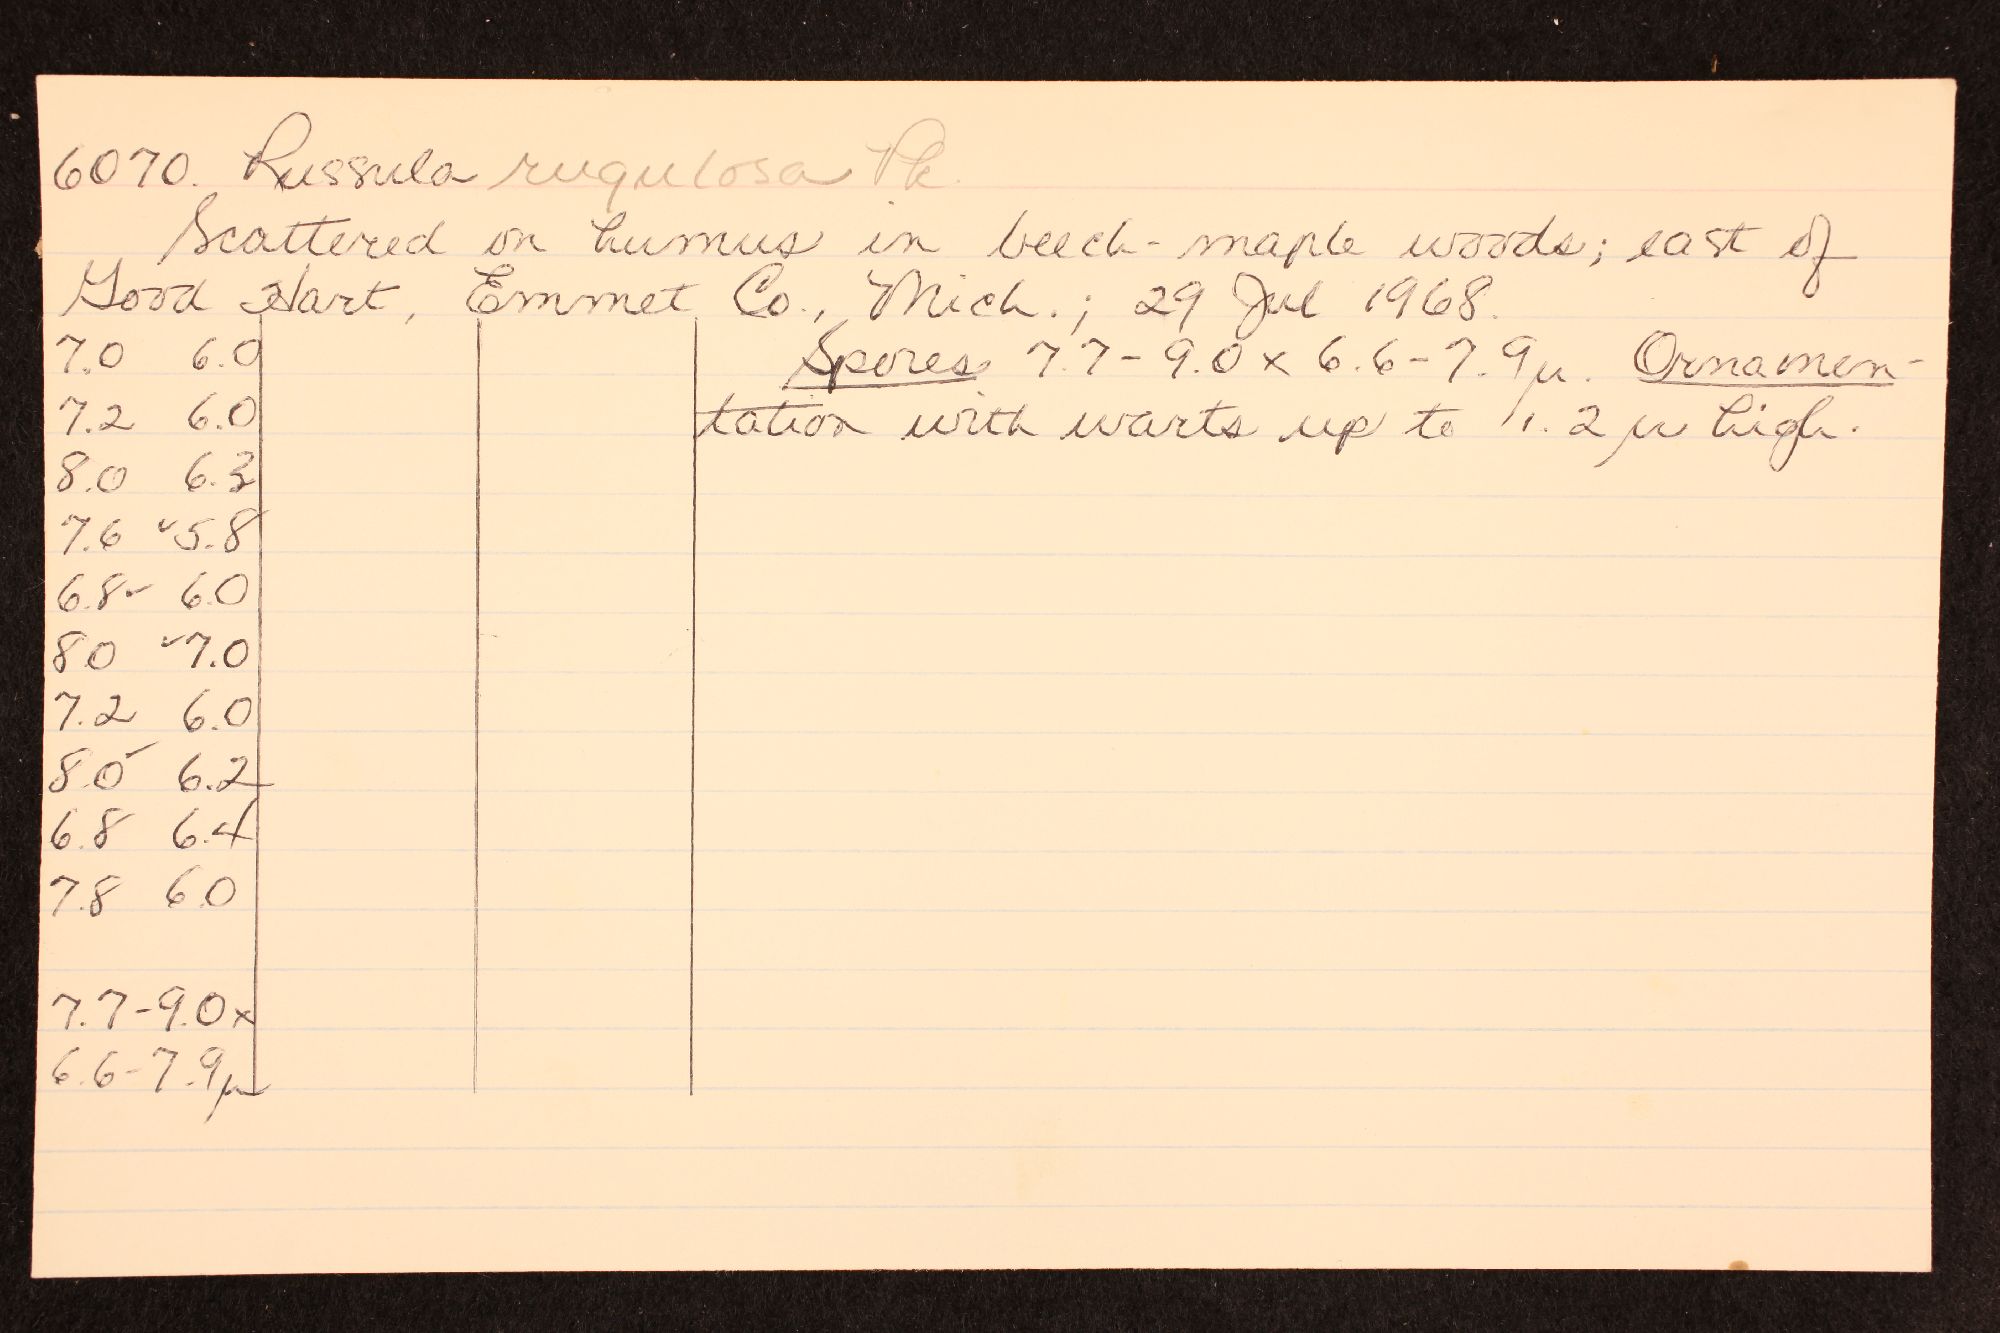 6070. Russula rugulosa Pk.
Scattered on humus in beech-maple woods; east of
Good Hart, Emmet Co., Mich.; 29 Jul 1968.
7.0 6.0
Spores 7.7-9.0 x 6.6-7.9µ. Ornamen-
7.2 6.0
tation with warts up to 1.2 µ high.
8.0 6.3
7.6 ✓5.8
6.8✓ 6.0
8.0 ✓7.0
7.2 6.0
8.0✓ 6.2
6.8 6.4
7.8 6.0
7.7-9.0 x
6.6-7.9µ